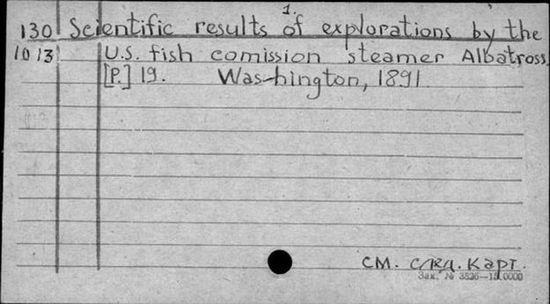 1.
130 Scientific results of explorations by the
1013 U.S. fish comission steamer Albatross.
[P.] 19. Washington, 1891
См. след. карт.
Зак. № 3836—15.0000